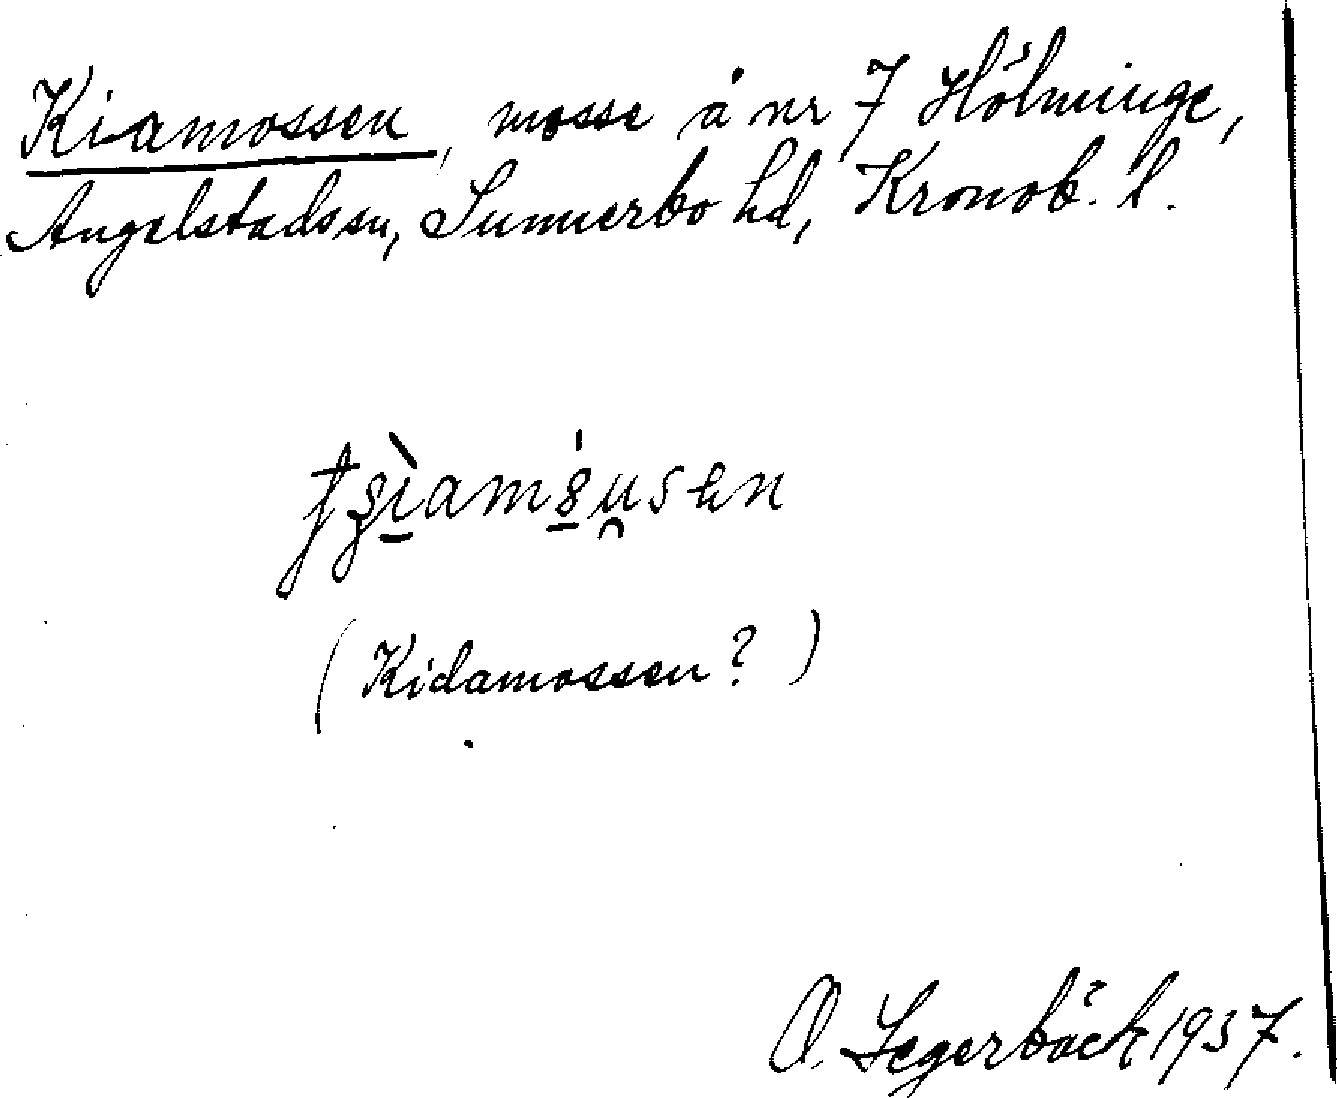 Kiamossen, mosse å nr 7 Hölminge,
Angelstads sn, Sunnerbo hd, Kronob. l.
(Kidamossen?)
O. Segerbäck 1937.